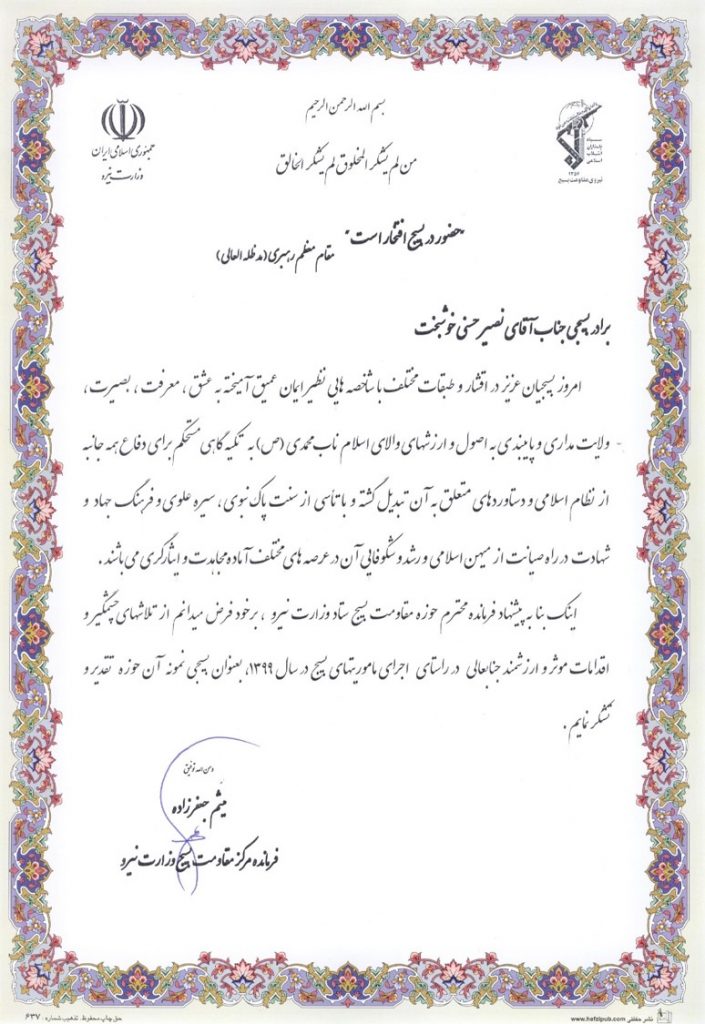 بسم الله الرحمن الرحیم
من لم یشکر المخلوق لم یشکر الخالق
جمهوری اسلامی ایران
وزارت نیرو
سپاه
پاسداران
انقلاب
اسلامی
۱۳۵۷
نیروی مقاومت بسیج
"حضور در بسیج افتخار است"
مقام معظم رهبری (مدظله العالی)
برادر بسیجی جناب آقای نصیر حسنی خوشبخت
امروز بسیجیان عزیز در اقشار و طبقات مختلف با شاخصه هایی نظیر ایمان عمیق آمیخته به عشق ، معرفت ، بصیرت ،
ولایت مداری و پایبندی به اصول و ارزشهای والای اسلام ناب محمدی (ص) به تکیه گاهی مستحکم برای دفاع همه جانبه
از نظام اسلامی و دستاوردهای متعلق به آن تبدیل گشته و با تأسی از سنت پاک نبوی ، سیره علوی و فرهنگ جهاد و
شهادت در راه صیانت از میهن اسلامی و رشد و شکوفایی آن در عرصه های مختلف آماده مجاهدت و ایثارگری می باشند .
اینک بنا به پیشنهاد فرمانده محترم حوزه مقاومت بسیج ستاد وزارت نیرو ، برخود فرض میدانم از تلاشهای چشمگیر و
اقدامات موثر و ارزشمند جنابعالی در راستای اجرای ماموریتهای بسیج در سال ۱۳۹۹، بعنوان بسیجی نمونه آن حوزه تقدیر و
تشکر نمایم .
و من الله توفیق
میثم جعفرزاده
فرمانده مرکز مقاومت بسیج وزارت نیرو
حق چاپ محفوظ . تذهیب شماره : ۶۳۷
ناشر حفظی www.hefzipub.com